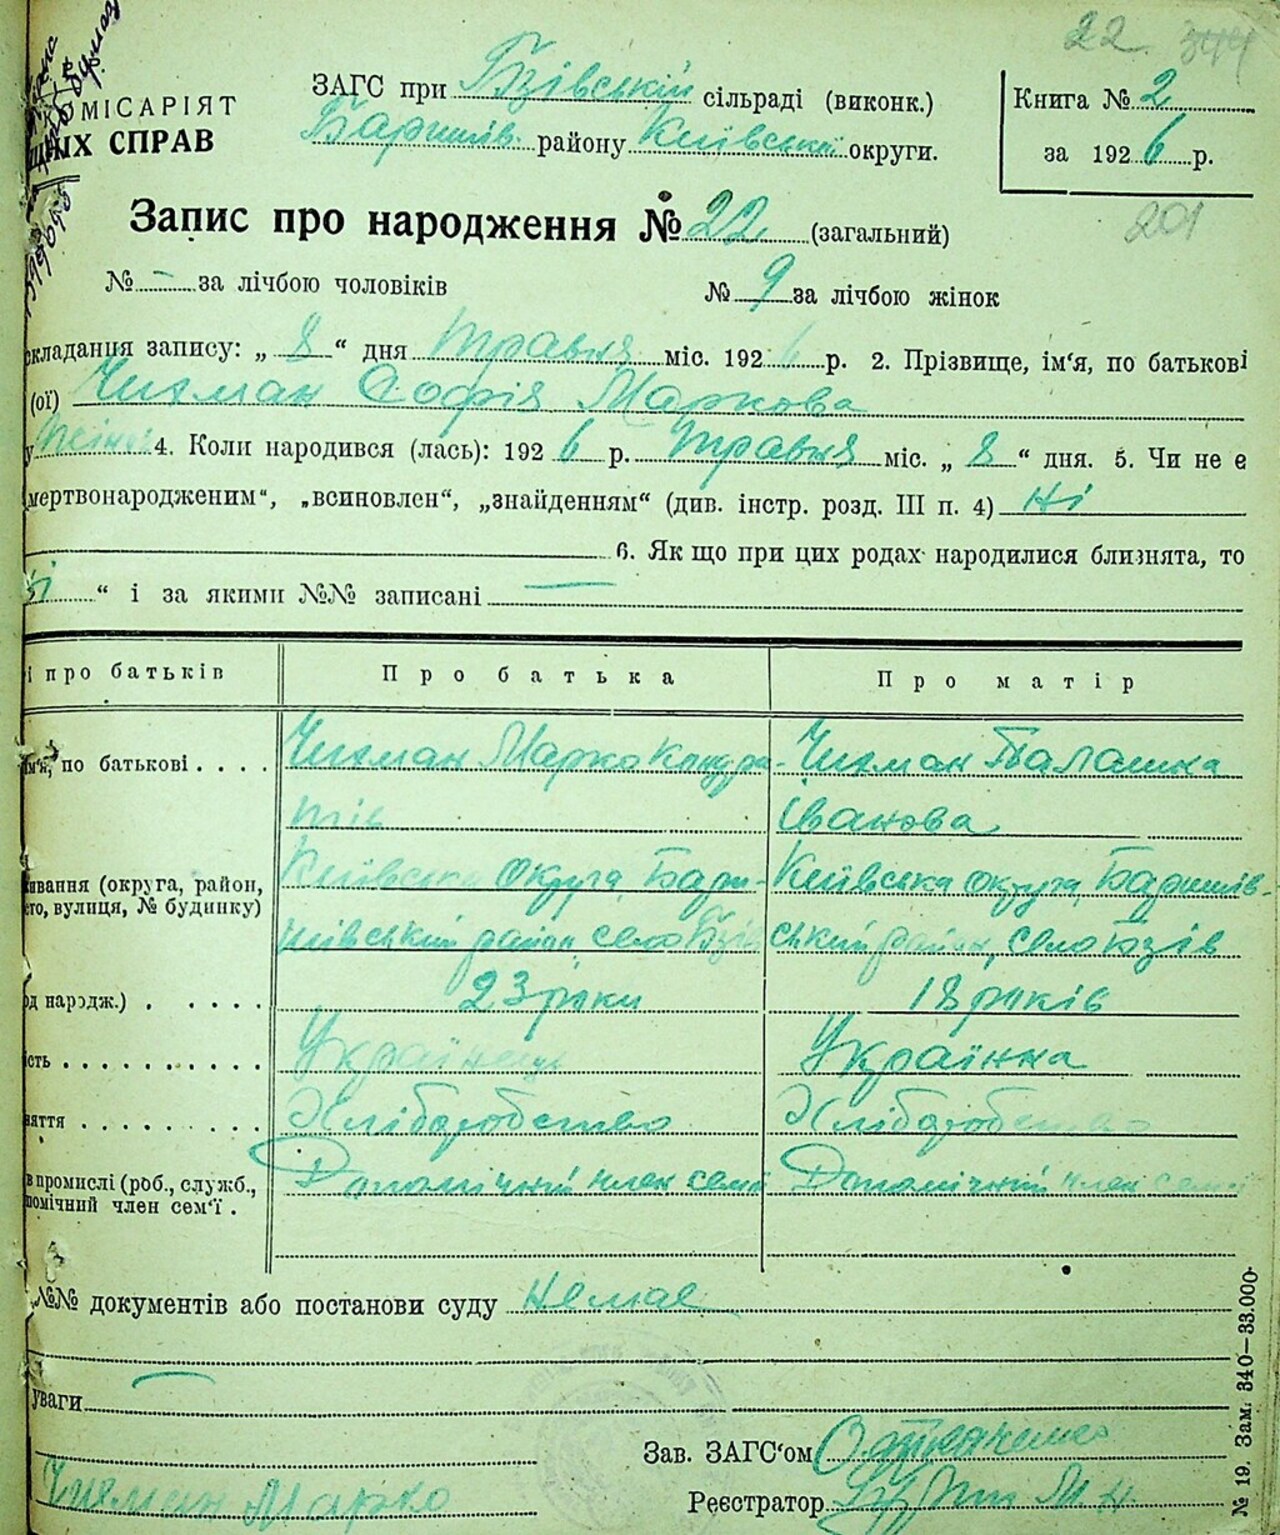 22
ЗАГС при Бзівській сільраді (виконк.)
КОМІСАРІЯТ
Баришів. району Київської округи.
Книга № 2
ЩНИХ СПРАВ
за 1926 р.
Запис про народження № 22 (загальний)
201
№ – за лічбою чоловіків № 9 за лічбою жінок
складання запису: „ 8 “ дня травня міс. 1926 р. 2. Прізвище, ім'я, по батькові
(ої) Чихман Софія Маркова
4. Коли народився (лась): 1926 р. травня міс. „ 8 “ дня. 5. Чи не є
мертвонародженим“, „всиновлен“, „знайденням“ (див. інстр. розд. III п. 4) ні
6. Як що при цих родах народилися близнята, то
“ і за якими №№ записані —
і про батьків Про батька Про матір
ім'я, по батькові . . . . Чихман Марко Кондра- Чихман Палашка
тів Іванова
ивання (округа, район, Київська округа, Бари- Київська округа, Баришів-
то, вулиця, № будинку)
шівський район, село Бзів ський район, село Бзів
од народж.) . . . . . 23 роки 18 років
ість . . . . . . . . . . Українець Українка
няття . . . . . . . . . Хліборобство Хліборобство
в промислі (роб., служб., Допомічний член семї Допомічний член семї
помічний член сем'ї .
№№ документів або постанови суду немає
уваги —
Зав. ЗАГС'ом
Чихман Марко Реєстратор
№ 19. Зам. 340—33.000.